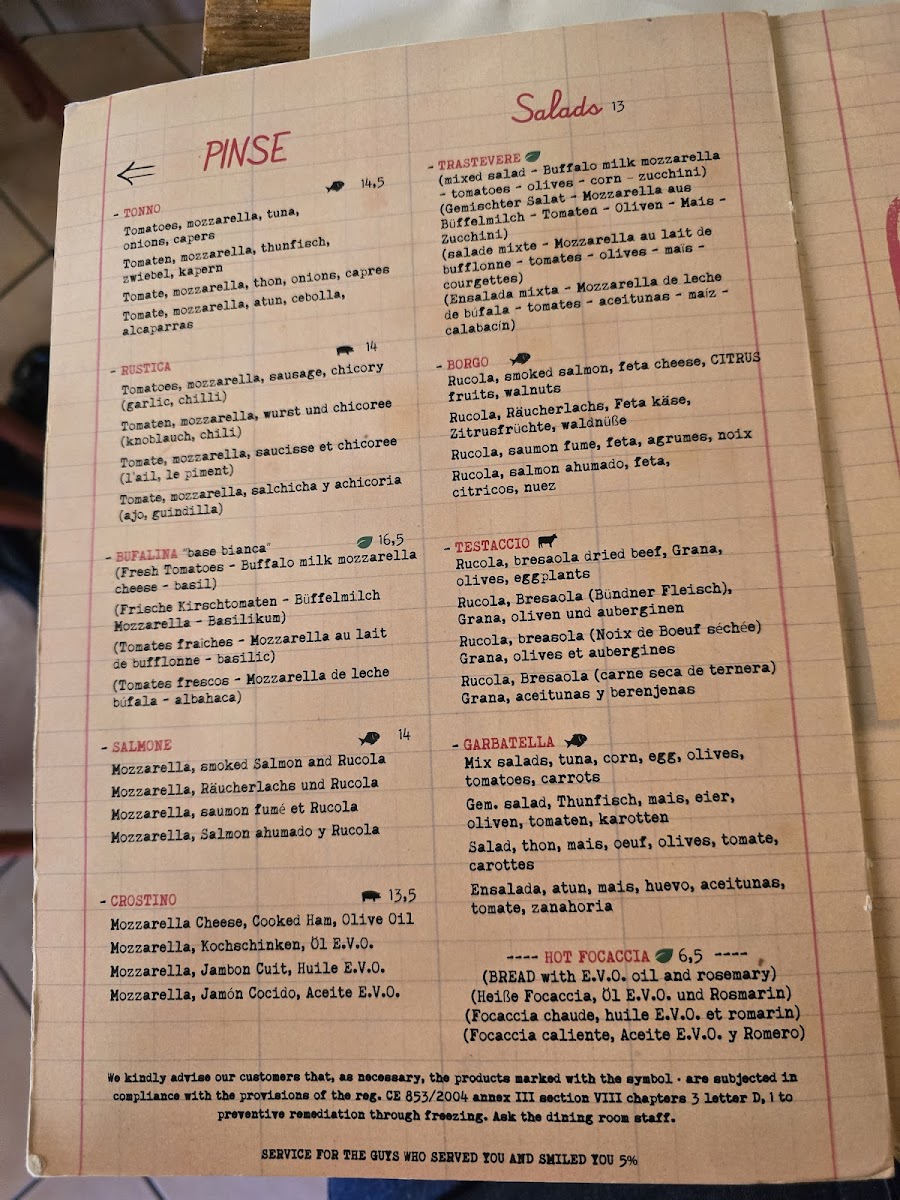 PINSE
- TONNO 14,5
Tomatoes, mozzarella, tuna,
onions, capers
Tomaten, mozzarella, thunfisch,
zwiebel, kapern
Tomate, mozzarella, thon, onions, capres
Tomate, mozzarella, atun, cebolla,
alcaparras
- RUSTICA 14
Tomatoes, mozzarella, sausage, chicory
(garlic, chilli)
Tomaten, mozzarella, wurst und chicoree
(knoblauch, chili)
Tomate, mozzarella, saucisse et chicoree
(l'ail, le piment)
Tomate, mozzarella, salchicha y achicoria
(ajo, guindilla)
- BUFALINA "base bianca" 16,5
(Fresh Tomatoes - Buffalo milk mozzarella
cheese - basil)
(Frische Kirschtomaten - Büffelmilch
Mozzarella - Basilikum)
(Tomates fraîches - Mozzarella au lait
de bufflonne - basilic)
(Tomates frescos - Mozzarella de leche
búfala - albahaca)
- SALMONE 14
Mozzarella, smoked Salmon and Rucola
Mozzarella, Räucherlachs und Rucola
Mozzarella, saumon fumé et Rucola
Mozzarella, Salmon ahumado y Rucola
- CROSTINO 13,5
Mozzarella Cheese, Cooked Ham, Olive Oil
Mozzarella, Kochschinken, Öl E.V.O.
Mozzarella, Jambon Cuit, Huile E.V.O.
Mozzarella, Jamón Cocido, Aceite E.V.O.
Salads 13
- TRASTEVERE
(mixed salad - Buffalo milk mozzarella
- tomatoes - olives - corn - zucchini)
(Gemischter Salat - Mozzarella aus
Büffelmilch - Tomaten - Oliven - Mais -
Zucchini)
(salade mixte - Mozzarella au lait de
bufflonne - tomates - olives - maïs -
courgettes)
(Ensalada mixta - Mozzarella de leche
de búfala - tomates - aceitunas - maíz -
calabacín)
- BORGO
Rucola, smoked salmon, feta cheese, CITRUS
fruits, walnuts
Rucola, Räucherlachs, Feta käse,
Zitrusfrüchte, waldnüße
Rucola, saumon fume, feta, agrumes, noix
Rucola, salmon ahumado, feta,
citricos, nuez
- TESTACCIO
Rucola, bresaola dried beef, Grana,
olives, eggplants
Rucola, Bresaola (Bündner Fleisch),
Grana, oliven und auberginen
Rucola, breasola (Noix de Boeuf séchée)
Grana, olives et aubergines
Rucola, Bresaola (carne seca de ternera)
Grana, aceitunas y berenjenas
- GARBATELLA
Mix salads, tuna, corn, egg, olives,
tomatoes, carrots
Gem. salad, Thunfisch, mais, eier,
oliven, tomaten, karotten
Salad, thon, mais, oeuf, olives, tomate,
carottes
Ensalada, atun, mais, huevo, aceitunas,
tomate, zanahoria
---- HOT FOCACCIA 6,5 ----
(BREAD with E.V.O. oil and rosemary)
(Heiße Focaccia, Öl E.V.O. und Rosmarin)
(Focaccia chaude, huile E.V.O. et romarin)
(Focaccia caliente, Aceite E.V.O. y Romero)
We kindly advise our customers that, as necessary, the products marked with the symbol · are subjected in
compliance with the provisions of the reg. CE 853/2004 annex III section VIII chapters 3 letter D, 1 to
preventive remediation through freezing. Ask the dining room staff.
SERVICE FOR THE GUYS WHO SERVED YOU AND SMILED YOU 5%